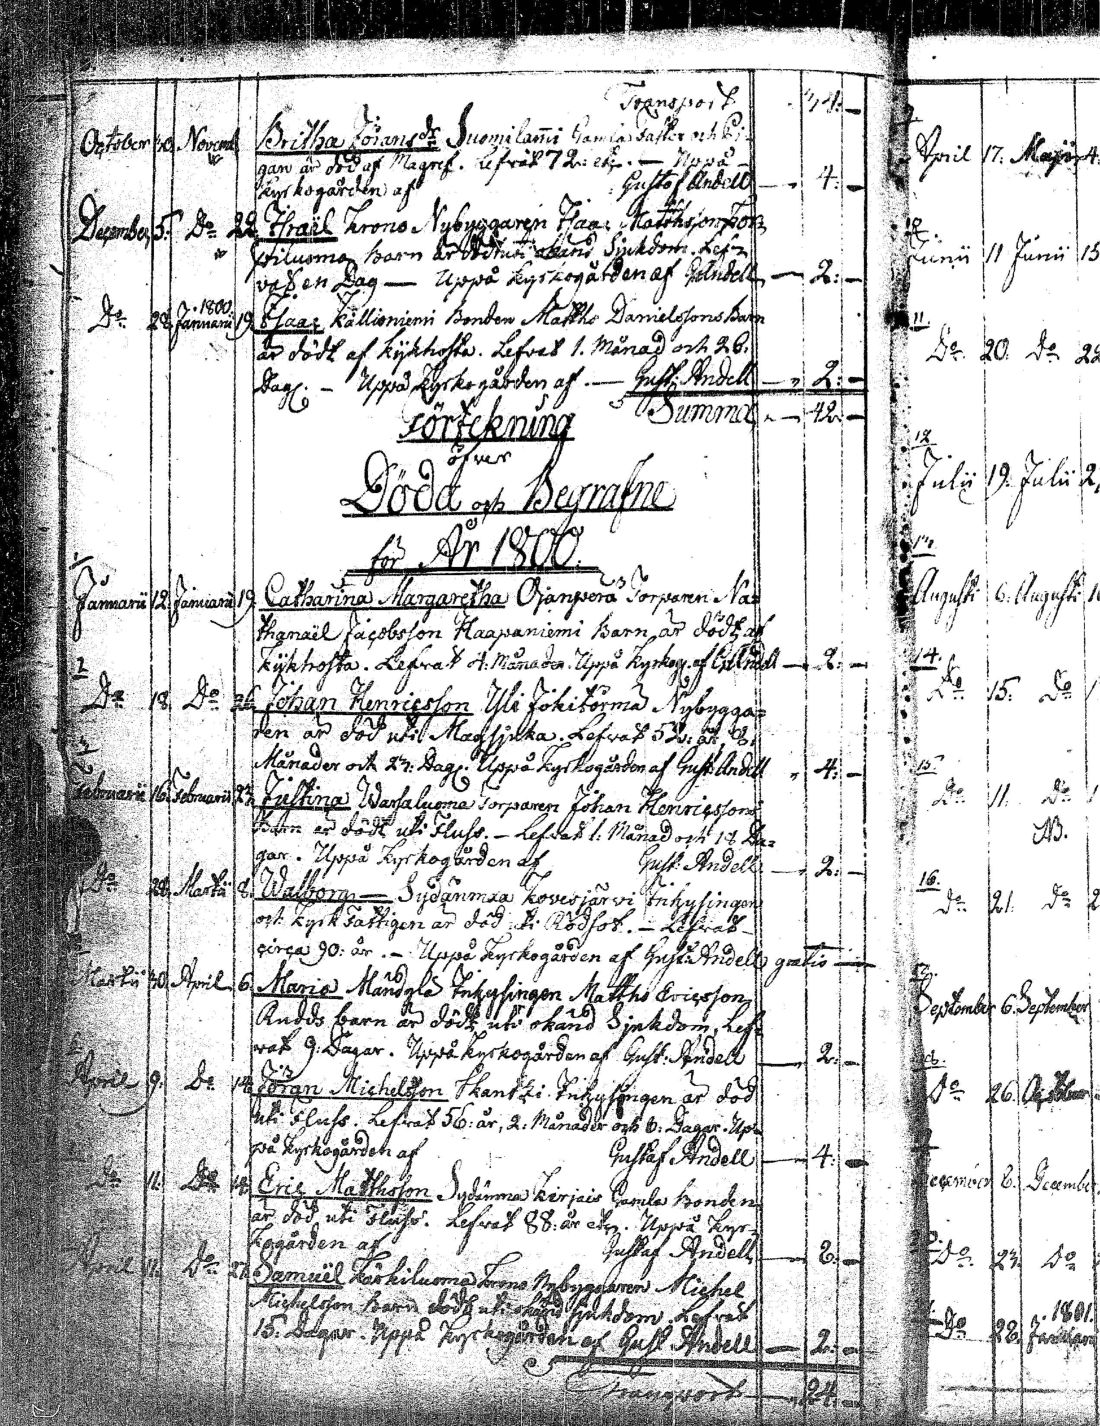 Transport 34:
October 30. Novemb. Britha Jöransdr Suomilammi Gamla och Pi-
gan är död af Magref. Lefvat 72: år etc. — Uppå
Kyrkogården af Gustaf Andell — 4: —
December 5. Do 22. Israël Krono Nybyggaren Isaac Matthssons
luoma barn är dödt uti okänd Sjukdom. Lef-
vat en Dag — Uppå Kyrkogården af G. Andell — 2: —
1800.
Do 28. Januarii 19. Isaac Kallioniemi Bonden Matths Danielssons Barn
är dödt af Kikhosta. Lefvat 1. Månad och 26.
Dag. — Uppå Kyrkogården af — Gust: Andell — 2: —
Summa — 42: —
Förtekning
öfver
Döda och Begrafne
för År 1800.
1.
Januarii 12. Januarii 19. Catharina Margaretha Ojanperä Torparen Na-
thanaël Jacobsson Haapaniemi Barn, är dödt af
Kikhosta. Lefvat 4. Månader. Uppå Kyrkog. af G. Andell — 2: —
2
Do 18. Do 26. Johan Henricsson Yli Jokitörmä Nybygga-
ren är död uti Magsjuka. Lefvat 52: år, 8:
Månader och 23: Dag. Uppå Kyrkogården af Gust. Andell 4: —
3
Februarii 16. Februarii 23. Justina Warsaluoma Torparen Johan Henricssons
Barn är dödt uti Fluss. — Lefvat 1: Månad och 18 Da-
gar. Uppå Kyrkogården af Gust: Andell — 2: —
Do 28. Martii 8. Walborg — Sydänmaa Kovesjärvi Inhysingen
och Kyrk Fattigen är död uti Rödsot. — Lefvat
circa 90: år. — Uppå Kyrkogården af Gust: Andell gratis —
Martii 30. April 6. Maria Mandala Inhysingen Matths Ericsson
Rudds barn är dödt uti okänd Sjukdom. Lef-
vat 9: Dagar. Uppå Kyrkogården af Gust. Andell — 2: —
April 9. Do 14. Jöran Michelsson Skantzi Inhysingen är död
uti Fluss. Lefvat 56: år, 2: Månader och 6: Dagar. Up-
på Kyrkogården af Gustaf Andell — 4: —
Do 11. Do Eric Matthsson Sydänma Gamla Bonden
är död uti Fluss. Lefvat 88: år etc. Uppå Kyr-
kogården af Gustaf Andell — 6: —
April 11. Do 27. Samuël Koskiluoma Krono Nybyggaren Michel
Michelsson Barn dödt uti okänd Sjukdom. Lefvat
15. Dagar. Uppå Kyrkogården af Gust Andell — 2: —
Transport — 24: —
April 17. Maji 4.
Junii 11 Junii 15
11.
Do 20. Do 22
12.
Julii 19. Julii 2
13.
Augusti 6. Augusti 10
14.
Do 15. Do 1
15.
Do 11. Do 1
NB.
16.
Do 21. Do 2
September 6. September
Do 26. October
December 6. December
Do 23. Do
1801.
Do 28. Januarii